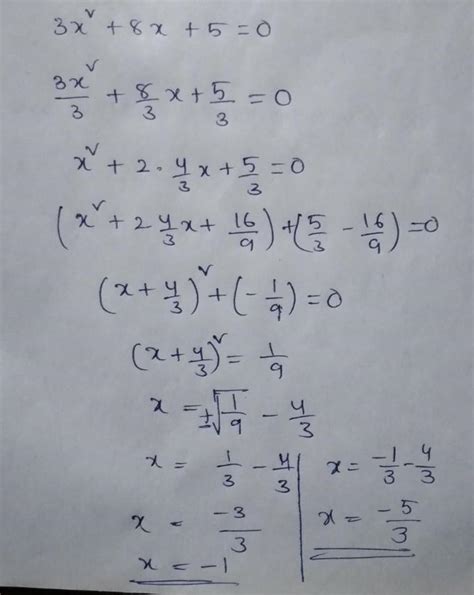 3x² + 8x + 5 = 0
3x²/3 + 8/3 x + 5/3 = 0
x² + 2 · 4/3 x + 5/3 = 0
(x² + 2 4/3 x + 16/9) + (5/3 - 16/9) = 0
(x + 4/3)² + (-1/9) = 0
(x + 4/3)² = 1/9
x = ±√(1/9) - 4/3
x = 1/3 - 4/3
x = -3/3
x = -1
x = -1/3 - 4/3
x = -5/3